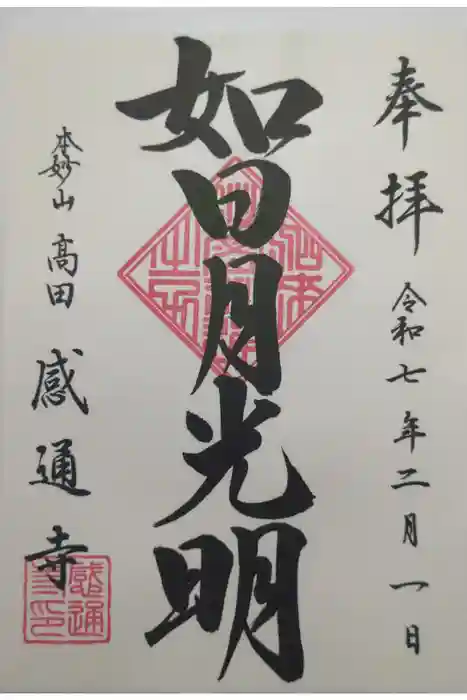 奉拝 令和七年二月一日
如日月光明
本妙山 高田 感通寺
感通寺印